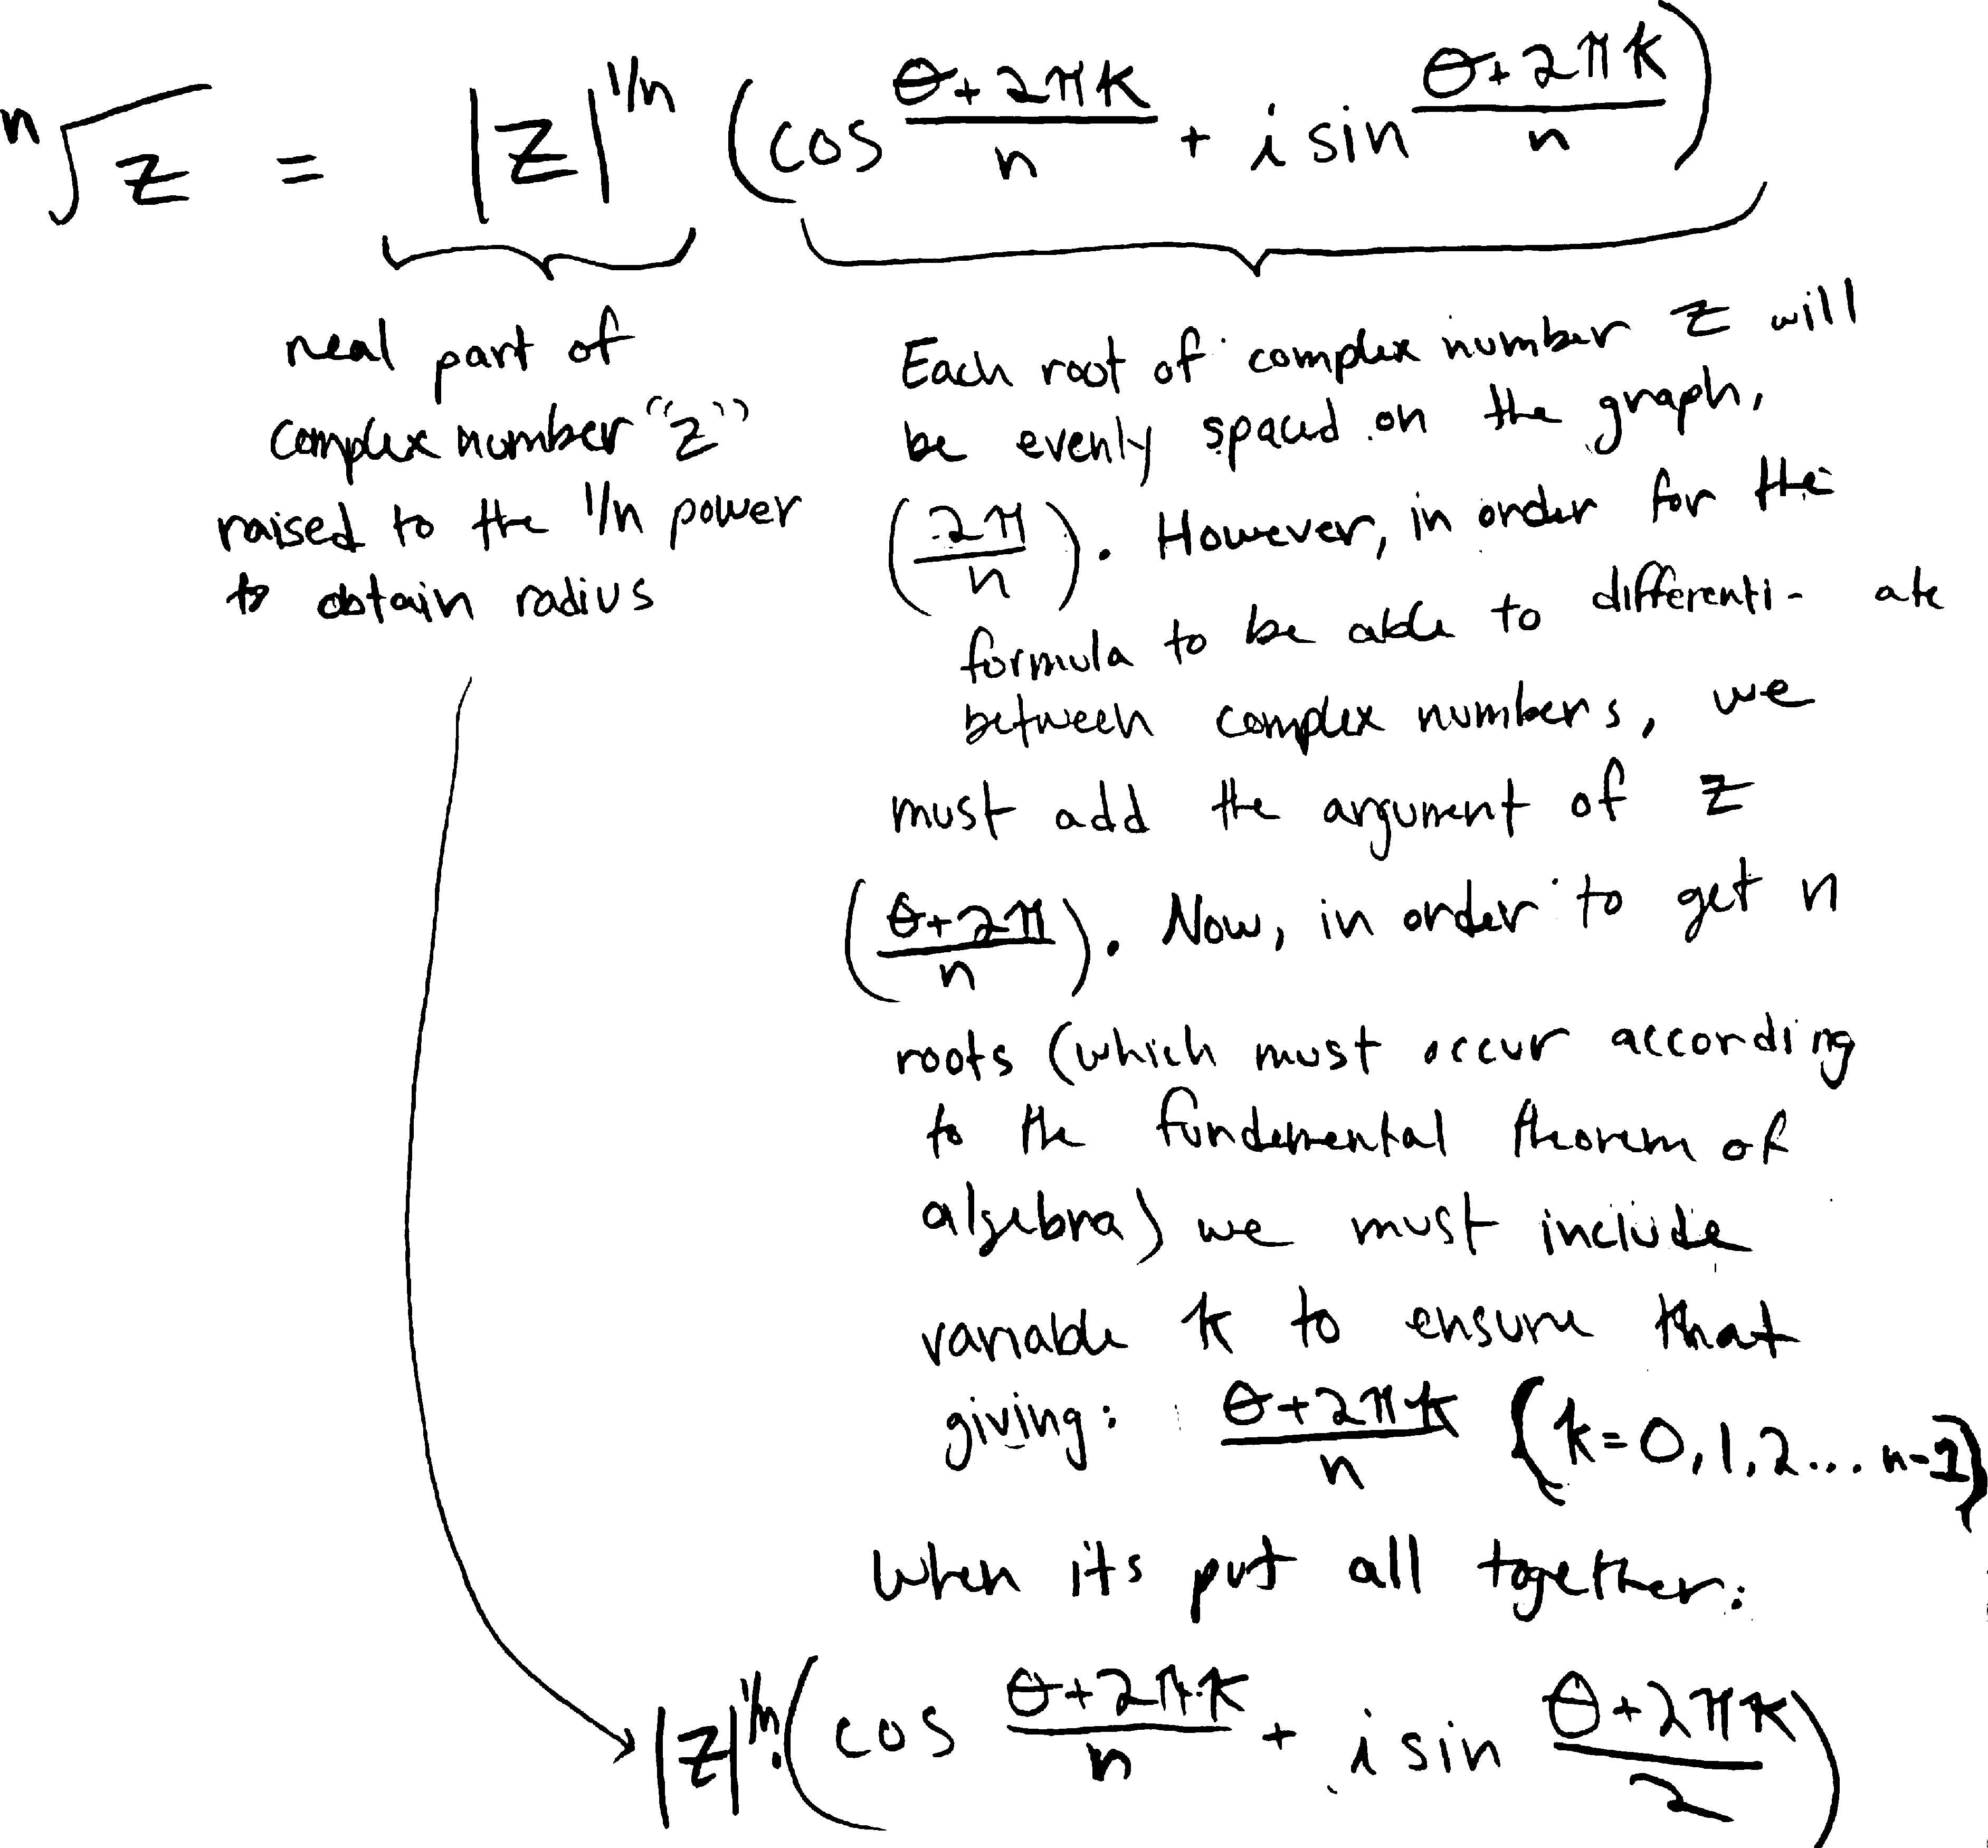 ⁿ√z = |z|^1/n (cos (θ+2πk)/n + i sin (θ+2πk)/n)
real part of
complex number "z"
raised to the 1/n power
to obtain radius
Each root of complex number z will
be evenly spaced on the graph,
(2π/n). However, in order for the
formula to be able to differenti- ate
between complex numbers, we
must add the argument of z
((θ+2π)/n). Now, in order to get n
roots (which must occur according
to the fundemental theorem of
algebra) we must include
variable k to ensure that
giving: (θ+2πk)/n (k=0,1,2...n-1)
When its put all together:
|z|^1/n·(cos (θ+2π·k)/n + i sin (θ+2πk)/2)